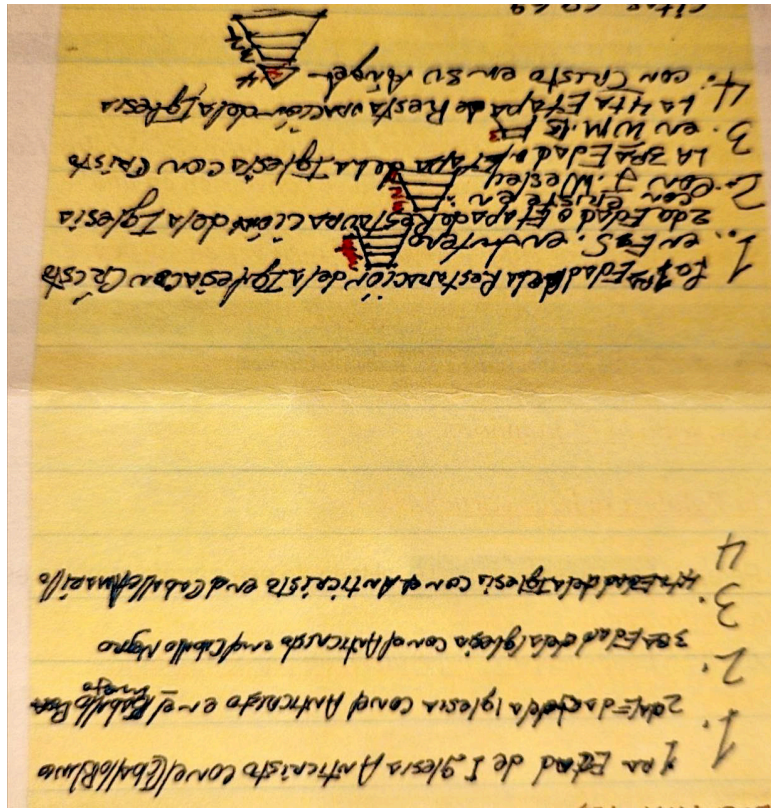 1ra Edad de Iglesia Anticristo con el Caballo Blanco
1.
2da Edad de la Iglesia con el Anticristo en el Caballo Ber
mejo
2.
3ra Edad de la Iglesia con el Anticristo en el Caballo Negro
3.
4ta Edad de la Iglesia con el Anticristo en el Caballo Amarillo
4
La 1ra Edad de la Restauración de la Iglesia con Cristo
1. en Lutero
2da Edad o Etapa de Restauración de la Iglesia
con Cristo en
2. con J. Wesley
La 3ra Edad o Etapa de la Iglesia con Cristo
3. en W.M.B.
La 4ta Etapa de Restauración de la Iglesia
4. con Cristo en su Angel